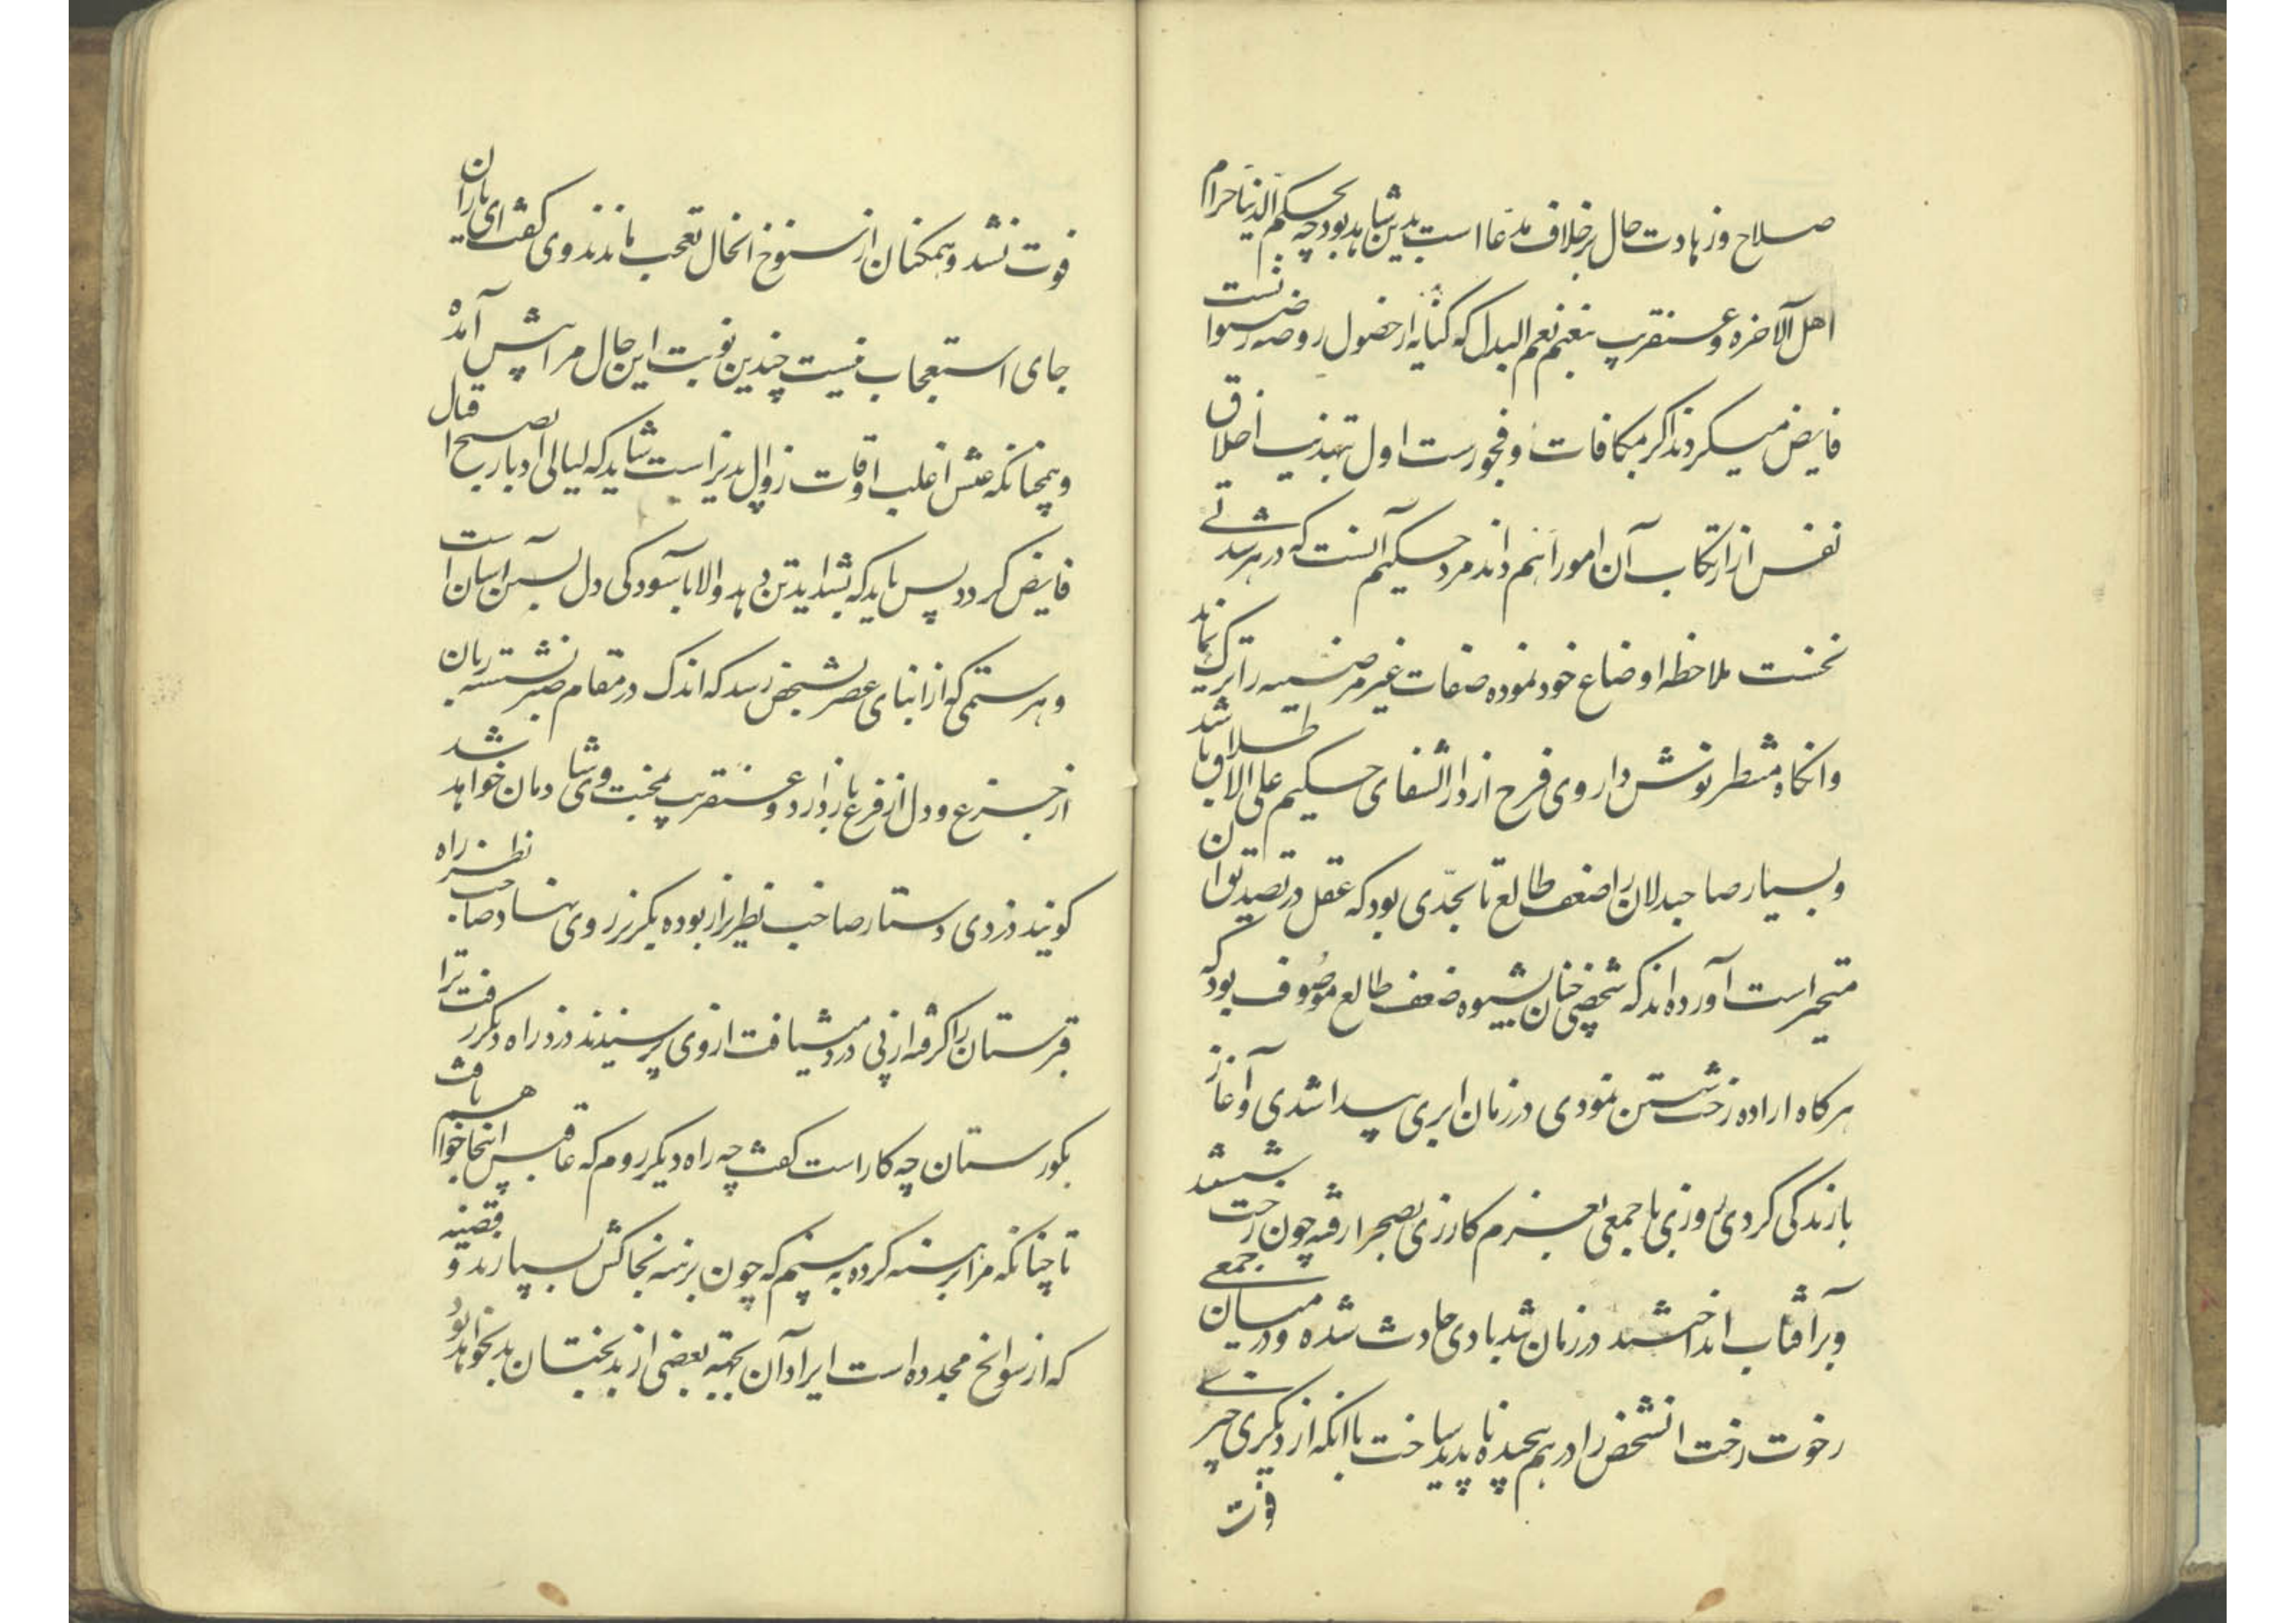 صلاح وزهادت حال برخلاف مدعا است بدین شاهد بود چه بحکم الدنیا حرام
اهل الآخره وعنقریب بنعم نعم البدل که کنایه از حضول روضه رضوانست
فایض میکردند اکر مکافات وفجورست اول تهذیب اخلاق
نفس از ارتکاب آن امور اهم داند مرد حکیم آنست که در هر شدتے
نخست ملاحظه اوضاع خود نموده صفات غیر مرضیه را ترک نماید
وانکاه منتظر نوش داروی فرح از دار الشفای حکیم علی الاطلاق باشد
وبسیار صاحبدلان را ضعف طالع تا بحدّی بود که عقل در تصدیق آن
متحیر است آورده اند که شخصی چنان بشیوه ضعف طالع موصوف بود که
هرکاه اراده رخت شستن نمودی در زمان ابری پیدا شدی وآغاز
بازندکی کردی روزی با جمعی بعزم کارزی بصحرا رفته چون رخت شستند
وبر آفتاب انداختند در زمان تند بادی حادث شده ودر میان جمعے
رخوت رخت انشخص را در هم پیچیده ناپدید ساخت با انکه از دیکری چیزے
فوت
فوت نشد وهمکنان از سنوخ انحال تعجب ماندند وی کفت ای یاران
جای استعجاب نیست چندین نوبت این حال مرا پیش آمده
وهمچنانکه عیش اغلب اوقات زوال پذیر است شاید که لیالی ادبار بصبح اقبال
فایض کردد پس باید که بشداید تن دهد والا بآسودکی دل بستن آسان است
وهر ستمی که از ابنای عصر بشخص رسد که اندک در مقام صبر نشسته زبان
از جزع ودل از فزع باز دارد وعنقریب بمحنت وی شادمان خواهد شد
کویند دزدی دستار صاحب نظری از ربوده بکریز روی نهاد صاحب نظر راه
قبرستان را کرفته از پی دزد میشتافت از وی پرسیدند دزد راه دیکر رفت ترا
بکورستان چه کار است کفت چه راه دیکر روم که عاقبتش اینجا خواهم یافت
تا چنانکه مرا برهنه کرده به بینم که چون برهنه بخاکش بسپارند و قضیه
که از سوانح مجدده است ایراد آن بجهته بعضی از بدبختان بد نخواهد بود